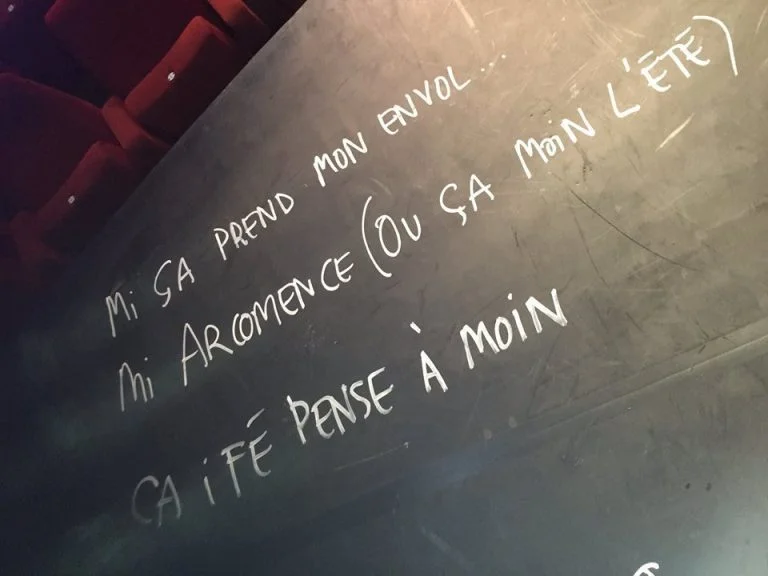 Mi ÇA PREND MON ENVOL...
Mi ARCOMENCE (OU ÇA MOIN L'ÉTÉ)
ÇA i FÉ PENSE À MOIN